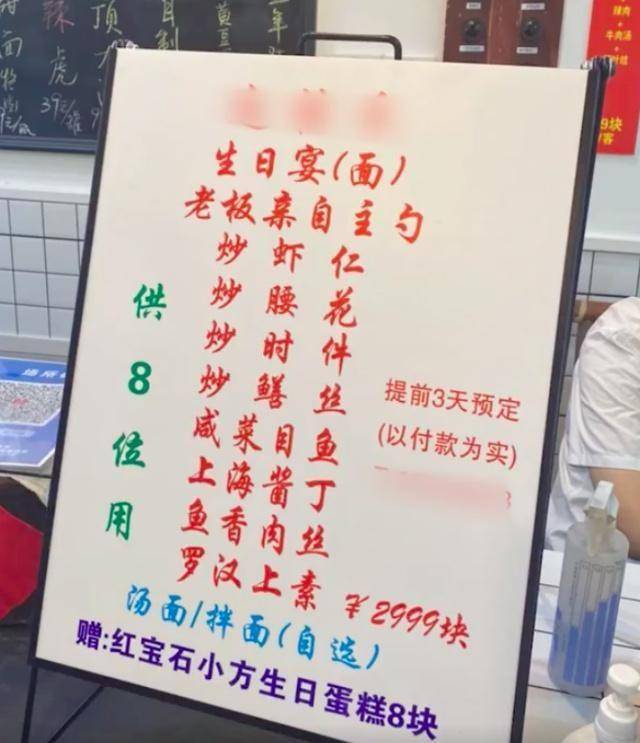 生日宴(面)
老板亲自主勺
炒虾仁
炒腰花
炒时件
炒鳝丝
咸菜目鱼
上海酱丁
鱼香肉丝
罗汉上素
¥2999块
供8位用
提前3天预定
(以付款为实)
汤面/拌面(自选)
赠:红宝石小方生日蛋糕8块
辣肉
+
牛肉汤
+
虎
39元/罐